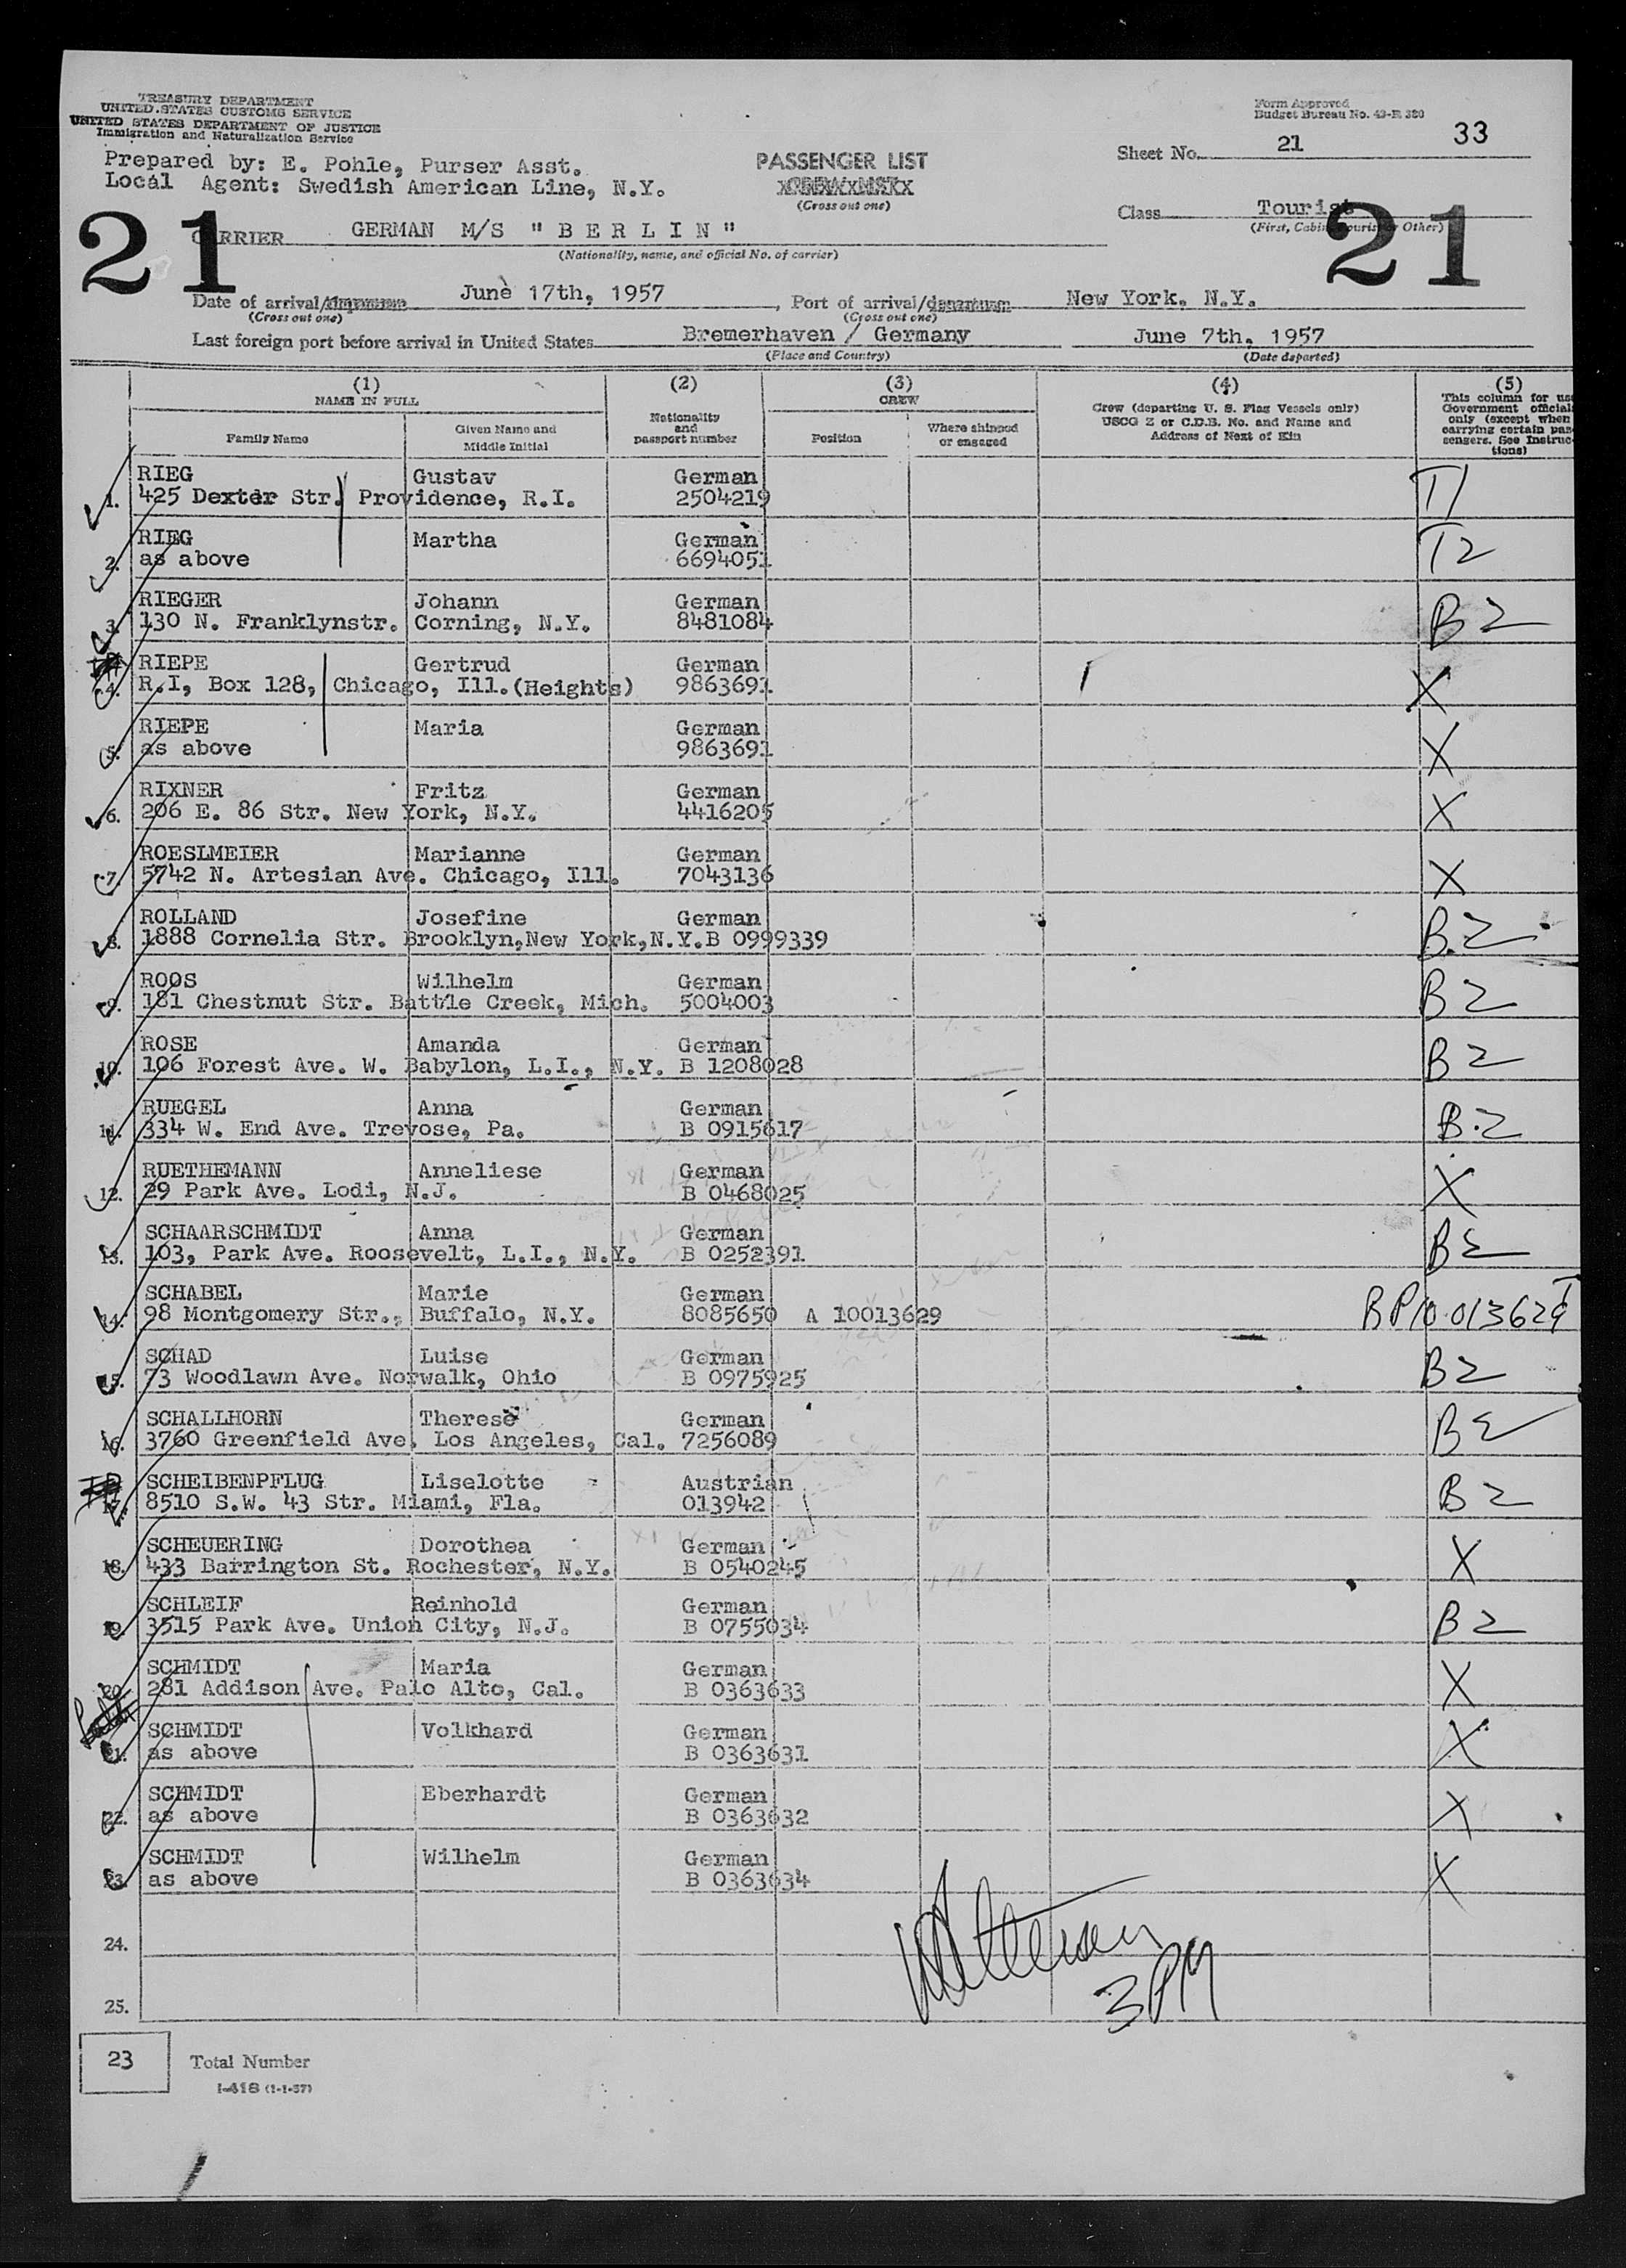 TREASURY DEPARTMENT
UNITED STATES CUSTOMS SERVICE
UNITED STATES DEPARTMENT OF JUSTICE
Immigration and Naturalization Service
Form Approved
Budget Bureau No. 43-R 380
Prepared by: E. Pohle, Purser Asst.
Local Agent: Swedish American Line, N.Y.
PASSENGER LIST
(Cross out one)
Sheet No. 21 33
21
21
Class Tourist
(First, Cabin, Tourist or Other)
CARRIER GERMAN M/S " B E R L I N "
(Nationality, name, and official No. of carrier)
Date of arrival/ June 17th, 1957, Port of arrival/ New York, N.Y.
(Cross out one) (Cross out one)
Last foreign port before arrival in United States Bremerhaven / Germany June 7th, 1957
(Place and Country) (Date departed)
(1) NAME IN FULL
Family Name
Given Name and Middle Initial
(2) Nationality and passport number
(3) CREW
Position
Where shipped or engaged
(4) Crew (departing U. S. Flag Vessels only) USCG Z or C.D.B. No. and Name and Address of Next of Kin
(5) This column for use Government officials only (except when carrying certain passengers. See Instructions)
RIEG Gustav German
1. 425 Dexter Str. Providence, R.I. 2504219 T1
RIEG Martha German
2. as above 6694051 T2
RIEGER Johann German
3. 130 N. Franklynstr. Corning, N.Y. 8481084 B2
RIEPE Gertrud German
4. R.I, Box 128, Chicago, Ill.(Heights) 9863691 X
RIEPE Maria German
5. as above 9863691 X
RIXNER Fritz German
6. 206 E. 86 Str. New York, N.Y. 4416205 X
ROESLMEIER Marianne German
7. 5742 N. Artesian Ave. Chicago, Ill. 7043136 X
ROLLAND Josefine German
8. 1888 Cornelia Str. Brooklyn,New York,N.Y. B 0999339 B.2
ROOS Wilhelm German
9. 181 Chestnut Str. Battle Creek, Mich. 5004003 B2
ROSE Amanda German
10. 106 Forest Ave. W. Babylon, L.I., N.Y. B 1208028 B2
RUEGEL Anna German
11. 334 W. End Ave. Trevose, Pa. B 0915617 B.2
RUETHEMANN Anneliese German
12. 29 Park Ave. Lodi, N.J. B 0468025 X
SCHAARSCHMIDT Anna German
13. 103, Park Ave. Roosevelt, L.I., N.Y. B 0252391 B2
SCHABEL Marie German
14. 98 Montgomery Str., Buffalo, N.Y. 8085650 A 10013629
SCHAD Luise German
15. 73 Woodlawn Ave. Norwalk, Ohio B 0975925 B2
SCHALLHORN Therese German
16. 3760 Greenfield Ave. Los Angeles, Cal. 7256089 B2
SCHEIBENPFLUG Liselotte Austrian
17. 8510 S.W. 43 Str. Miami, Fla. 013942 B2
SCHEUERING Dorothea German
18. 433 Barrington St. Rochester, N.Y. B 0540245 X
SCHLEIF Reinhold German
19. 3515 Park Ave. Union City, N.J. B 0755034 B2
SCHMIDT Maria German
20. 281 Addison Ave. Palo Alto, Cal. B 0363633 X
SCHMIDT Volkhard German
21. as above B 0363631 X
SCHMIDT Eberhardt German
22. as above B 0363632 X
SCHMIDT Wilhelm German
23. as above B 0363634 X
24.
25.
3 PM
23 Total Number
I-418 (1-1-57)